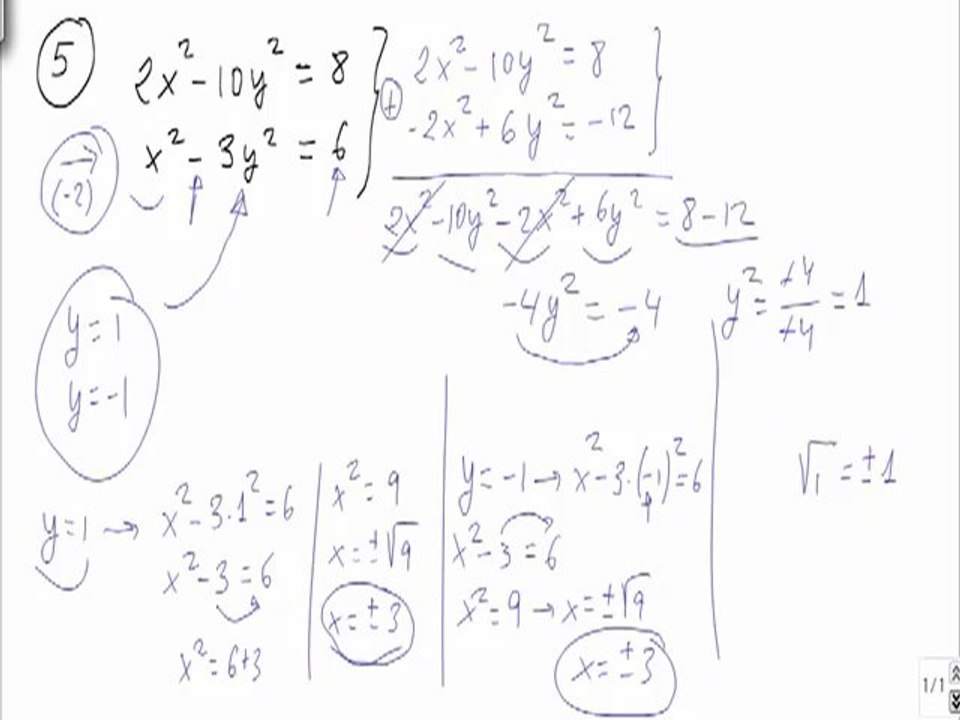 5
2x² - 10y² = 8
x² - 3y² = 6
(-2)
+
2x² - 10y² = 8
-2x² + 6y² = -12
2x² - 10y² - 2x² + 6y² = 8 - 12
-4y² = -4
y² = -4/-4 = 1
√1 = ±1
y = 1
y = -1
y = 1 → x² - 3·1² = 6
x² - 3 = 6
x² = 6+3
x² = 9
x = ±√9
x = ±3
y = -1 → x² - 3·(-1)² = 6
x² - 3 = 6
x² = 9 → x = ±√9
x = ±3
1/1